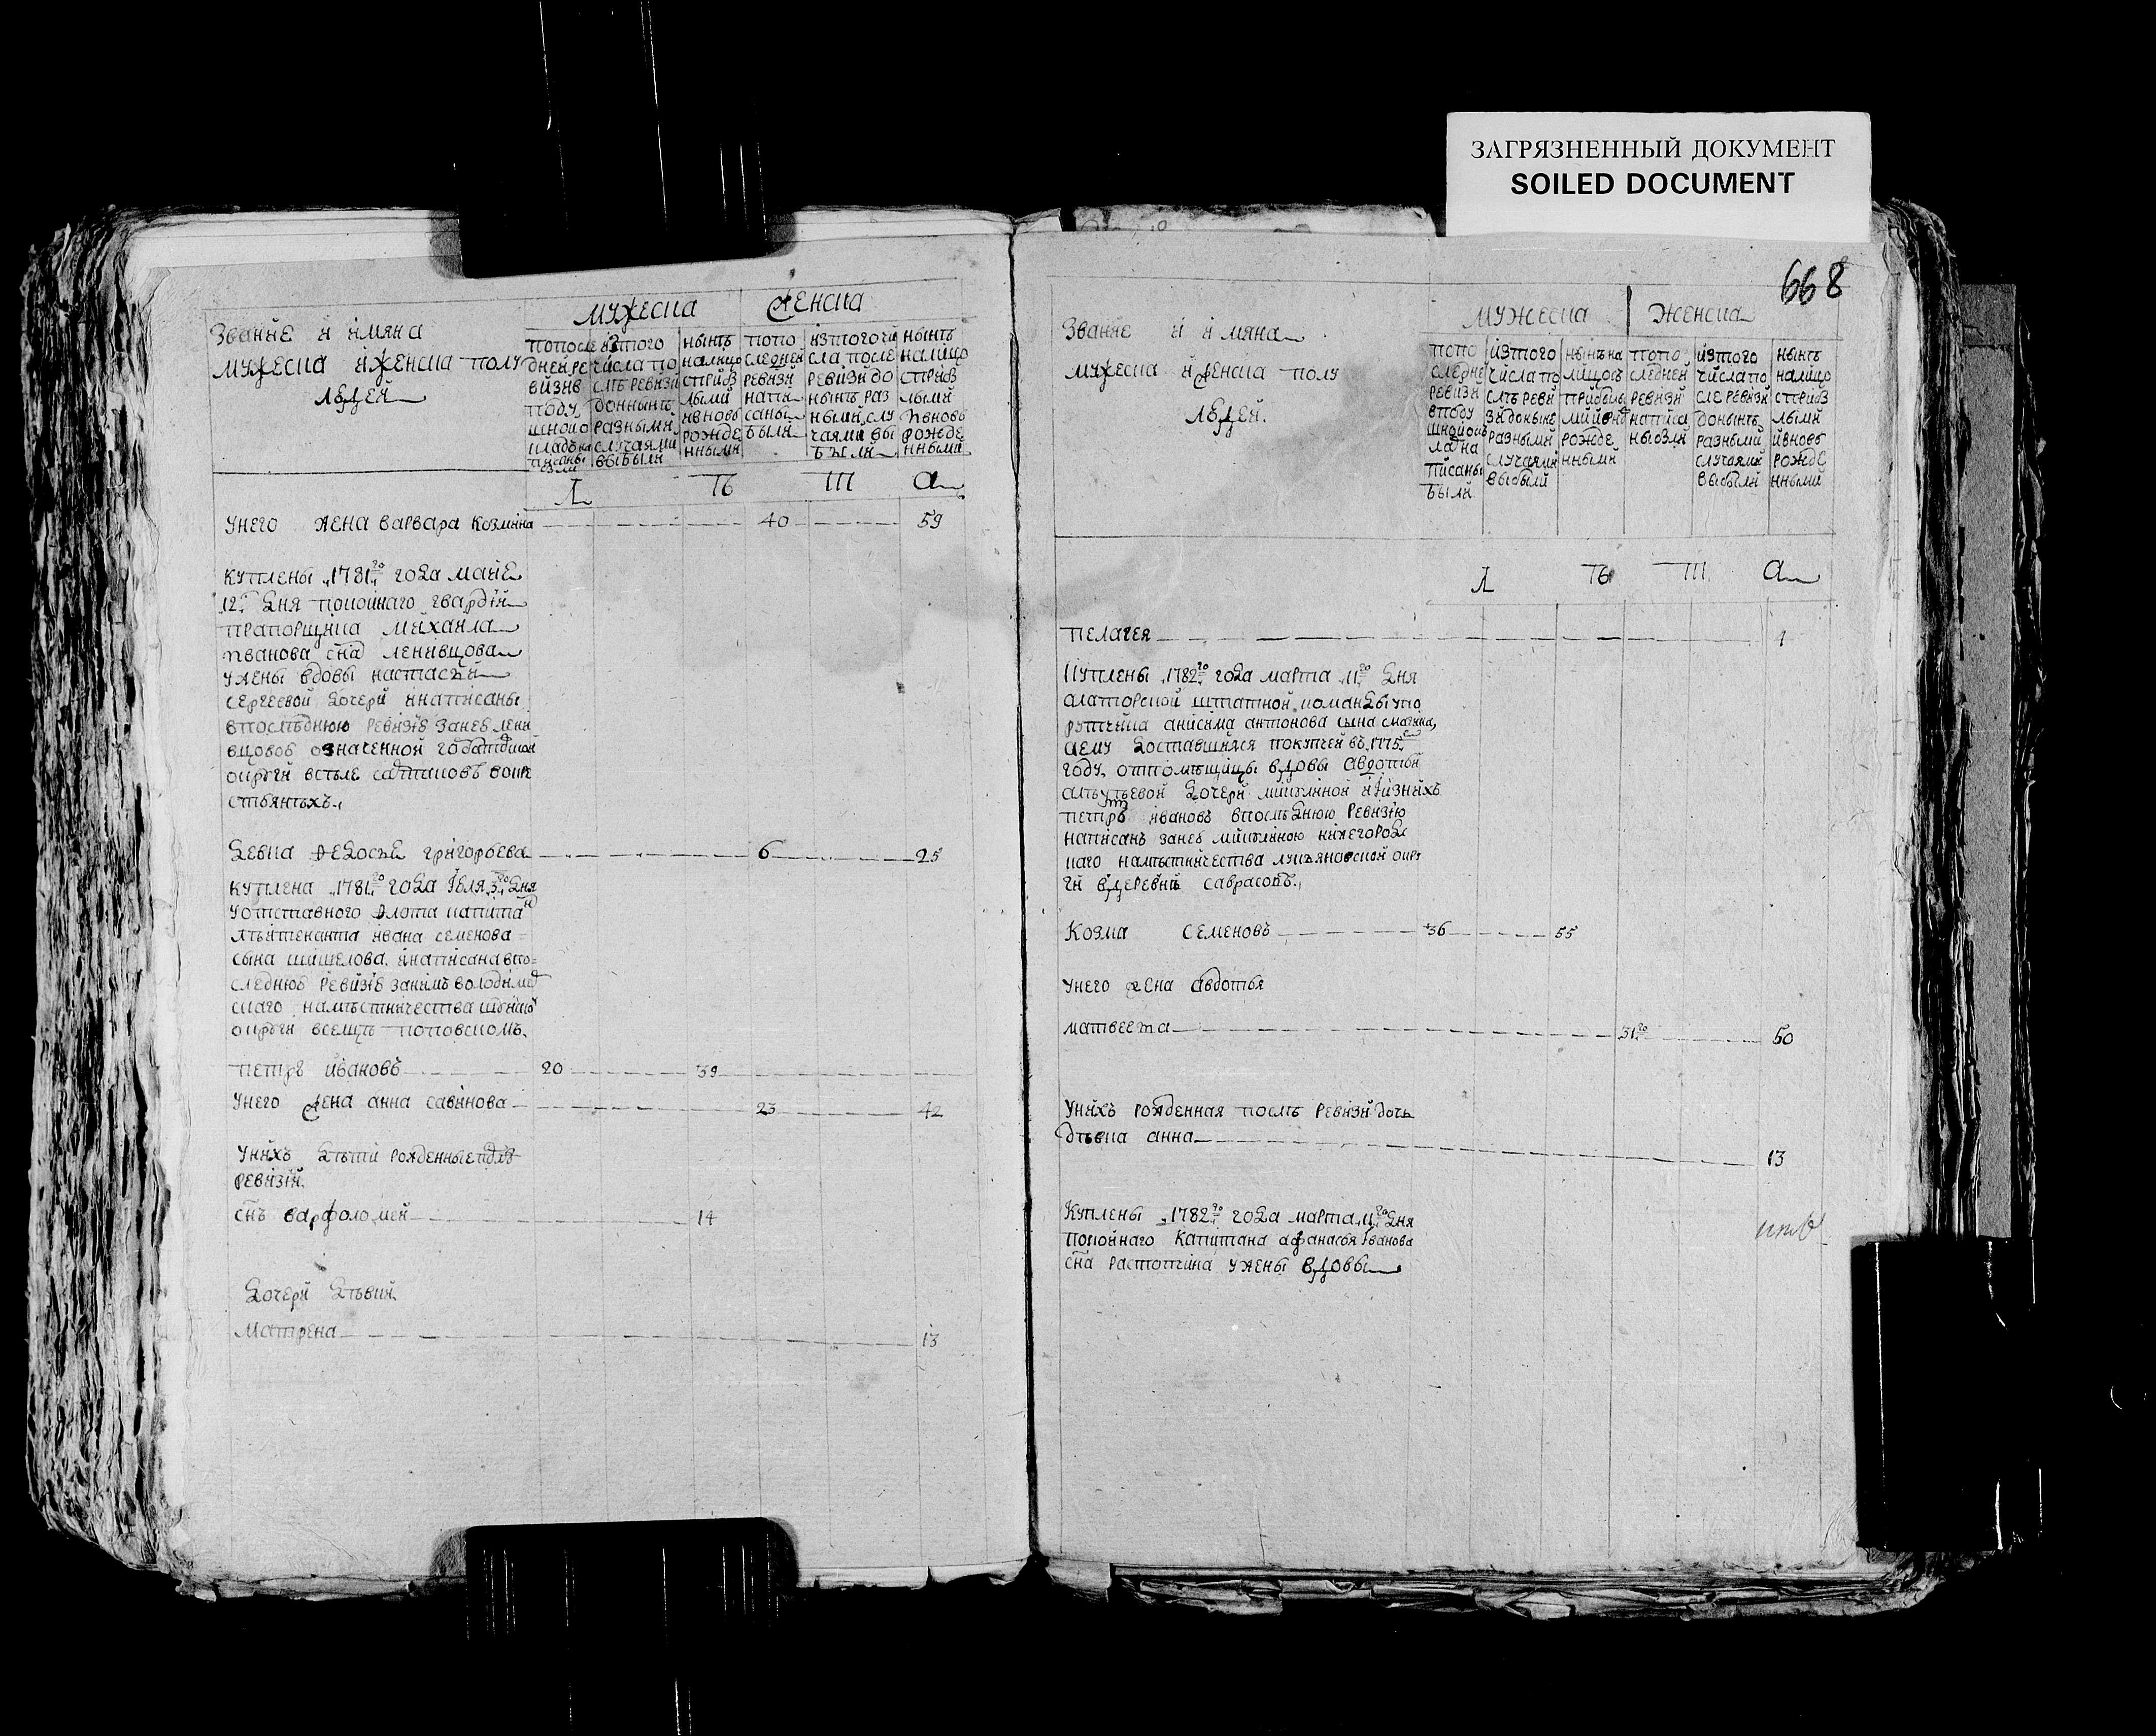 ЗАГРЯЗНЕННЫЙ ДОКУМЕНТ
SOILED DOCUMENT
668
Званйе й ймяна
мужеска йженска полу
людей
мужеска
женска
попосле
дней ре
визив
году
изтого
числа по
слѣ ревизи
доннынѣ
разными
случаями
выбыли
нынѣ
налицо
сприбы
лыми
ивновь
рожде
нными
попо
следней
ревизи
напи
саны
были
изтого чи
сла после
ревизи до
нынѣ раз
ными слу
чаями вы
были
нынѣ
налицо
сприбы
лыми
ивновь
рожде
нными
унего жена варвара козмина 40 59
куплены 1781го года маие
12 дня покойнаго гвардйи
прапорщика михайла
иванова сна ленивцова
ужены вдовы настасьи
сергеевой дочери инаписаны
впослѣднюю ревизию занеб лени
вцовоб означенной
округи вселе
стьянехъ
девка федосья григорьева 6 25
куплена 1781го года июля 3го дня
уотставного флота капита
лѣитенанта ивана семенова
сына шишелова инаписана впо
следнюю ревизию занимъ володимер
скаго намѣстничества
округи вселцѣ поповскомъ
петръ ивановъ 20 39
унего жена анна савинова 23 42
унихъ дѣти рожденные послѣ
ревизйи
снъ варфоломей 14
дочери дѣвки
матрена 13
Званйе й ймяна
мужеска йженска полу
людей
мужеска
женска
попо
следне
ревизи
вподу
писаны
были
изтого
числа по
слѣ реви
зи доныне
разными
случаями
выбыли
нынѣ на
лицосъ
прибылы
ми
рожде
нными
попо
следней
ревизи
изтого
числа по
сле ревизи
донынѣ
разными
случаями
выбыли
нынѣ
налицо
сприбы
лыми
йвновь
рожде
нными
пелагея 1
куплены 1782го года марта 11го дня
алаторской штатной команды упо
ручика анисима антонова сына
ему доставшияся покупкей въ 1775м
году отпомѣщицы вдовы авдотьи
дочери
петръ ивановъ впослѣднюю ревизию
написанъ занеб нижегородс
каго намѣстничества лукьяновской окру
ги вдеревнѣ саврасовѣ
Козма семеновъ 36 55
унего жена авдотья
матвеева 31го 50
унихъ рожденная послѣ ревизи дочь
дѣвка анна 13
Куплены 1782го года марта 11го дня
покойнаго капитана афанасья иванова
сна растопчина ужены вдовы